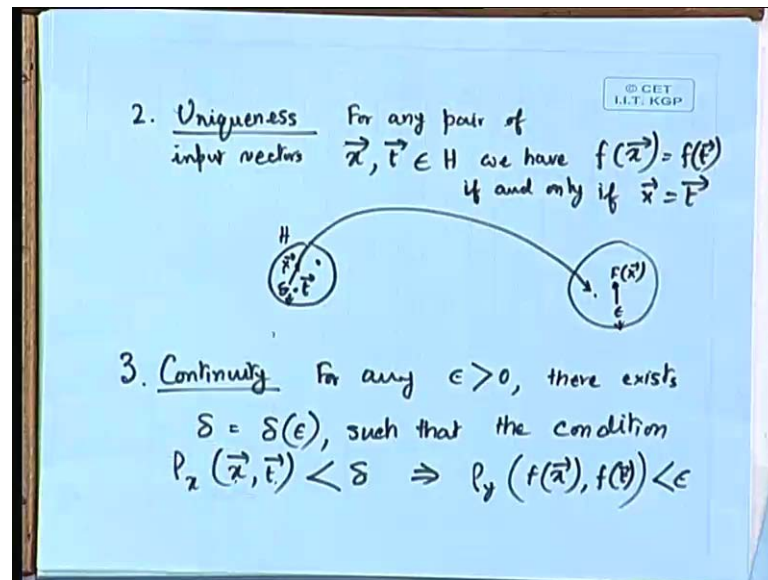 © CET
I.I.T. KGP
2. Uniqueness For any pair of
input vectors x⃗, t⃗ ∈ H we have f(x⃗) = f(t⃗)
if and only if x⃗ = t⃗
H
x⃗
δ t⃗
F(x⃗)
ε
3. Continuity For any ε > 0, there exists
δ = δ(ε), such that the condition
ρx (x⃗, t⃗) < δ ⇒ ρy (f(x⃗), f(t⃗)) < ε